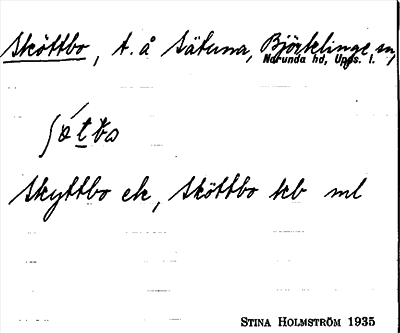 Sköttbo, t. å Sätuna, Björklinge sn,
Norunda hd, Upps. l.
Skyttbo ek, Sköttbo kb ml
STINA HOLMSTRÖM 1935